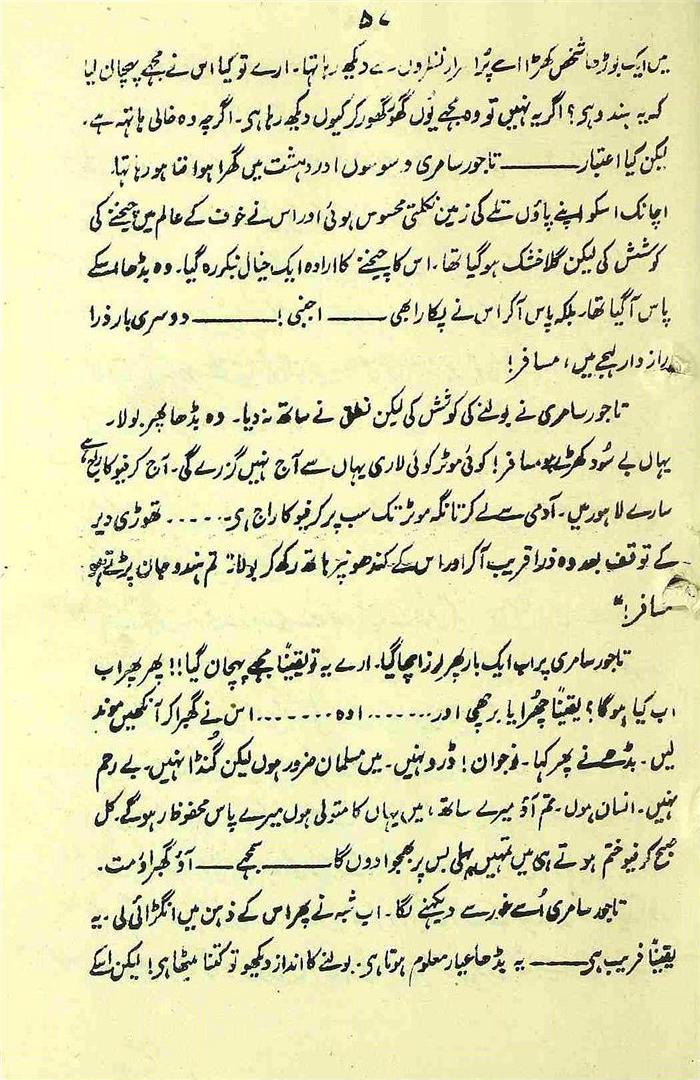 ۵۷
میں ایک بوڑھا شخص کھڑا اسے پُر اسرار نظروں سے دیکھ رہا تھا۔ ارے تو کیا اس نے مجھے پہچان لیا
کہ یہ ہندو ہی؟ اگر یہ نہیں تو وہ مجھے یُوں گھُور گھُور کر کیوں دیکھ رہا ہی۔ اگرچہ وہ خالی ہاتھ ہے۔
لیکن کیا اعتبار ——— تاجور سامری وسوسوں اور دہشت میں گھرا ہوا فنا ہو رہا تھا۔
اچانک اسکو اپنے پاؤں تلے کی زمین نکلتی محسوس ہوئی اور اس نے خوف کے عالم میں چیخنے کی
کوشش کی لیکن گلا خشک ہوگیا تھا۔ اس کا چیخنے کا ارادہ ایک خیال بنکر رہ گیا۔ وہ بڈھا اسکے
پاس آگیا تھا، بلکہ پاس آکر اس نے پکارا بھی —— اجنبی! ——— دوسری بار ذرا
رازدار لہجے میں، مسافر!
تاجور سامری نے بولنے کی کوشش کی لیکن نطق نے ساتھ نہ دیا۔ وہ بڈھا پھر بولا۔
یہاں بے سُود کھڑے ہو مسافر! کوئی موٹر کوئی لاری یہاں سے آج نہیں گزرے گی۔ آج کرفیو کا راج ہے
سارے لاہور میں۔ آدمی سے لے کر تانگہ موٹر تک سب پر کرفیو کا راج ہی۔ .... تھوڑی دیر
کے توقف بعد وہ ذرا قریب آکر اور اس کے کندھونپر ہاتھ رکھ کر بولا: تم ہندو جان پڑتے ہو
مسافر!"
تاجور سامری پر اب ایک بار پھر لرزا چھا گیا۔ ارے یہ تو یقیناً مجھے پہچان گیا!! پھر پھر اب
اب کیا ہوگا؟ یقیناً چھُرا یا برچھی اور ....... اوہ ....... اس نے گھبرا کر آنکھیں موند
لیں۔ بڈھے نے پھر کہا۔ نوجوان! ڈرو نہیں۔ میں مسلمان ضرور ہوں لیکن گُنڈا نہیں۔ بے رحم
نہیں۔ انسان ہوں۔ تم آؤ میرے ساتھ، میں یہاں کا متولی ہوں میرے پاس محفوظ رہو گے۔ کل
صبح کرفیو ختم ہوتے ہی میں تمہیں پہلی بس پر بھجوا دوں گا ——— سمجھے —— آؤ گھبراؤ مت۔
تاجور سامری اُسے غور سے دیکھنے لگا۔ اب شبہ نے پھر اس کے ذہن میں انگڑائی لی۔ یہ
یقیناً فریب ہی —— یہ بڈھا عیار معلوم ہوتا ہی۔ بولنے کا انداز دیکھو تو کتنا میٹھا ہی! لیکن اسکے